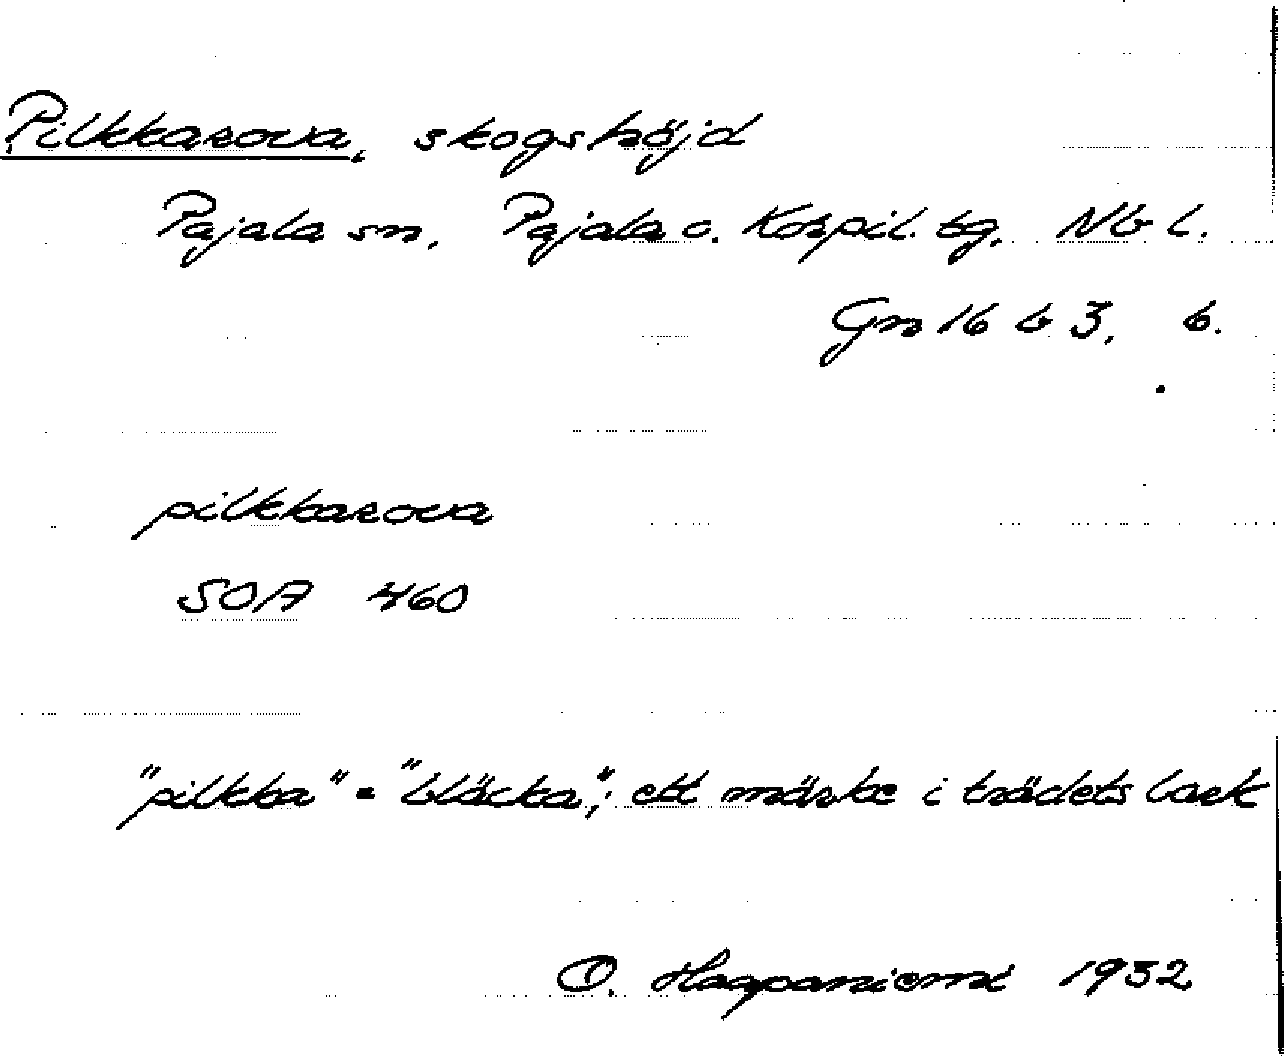 Pilkkarova, skogshöjd
Pajala sn, Pajala o. Korpil. tg, Nb l.
Gn 16 b 3, b.
pilkkarova
SOA 460
"pilkka" = "bläcka"; ett märke i trädets bark
O. Haapaniemi 1932